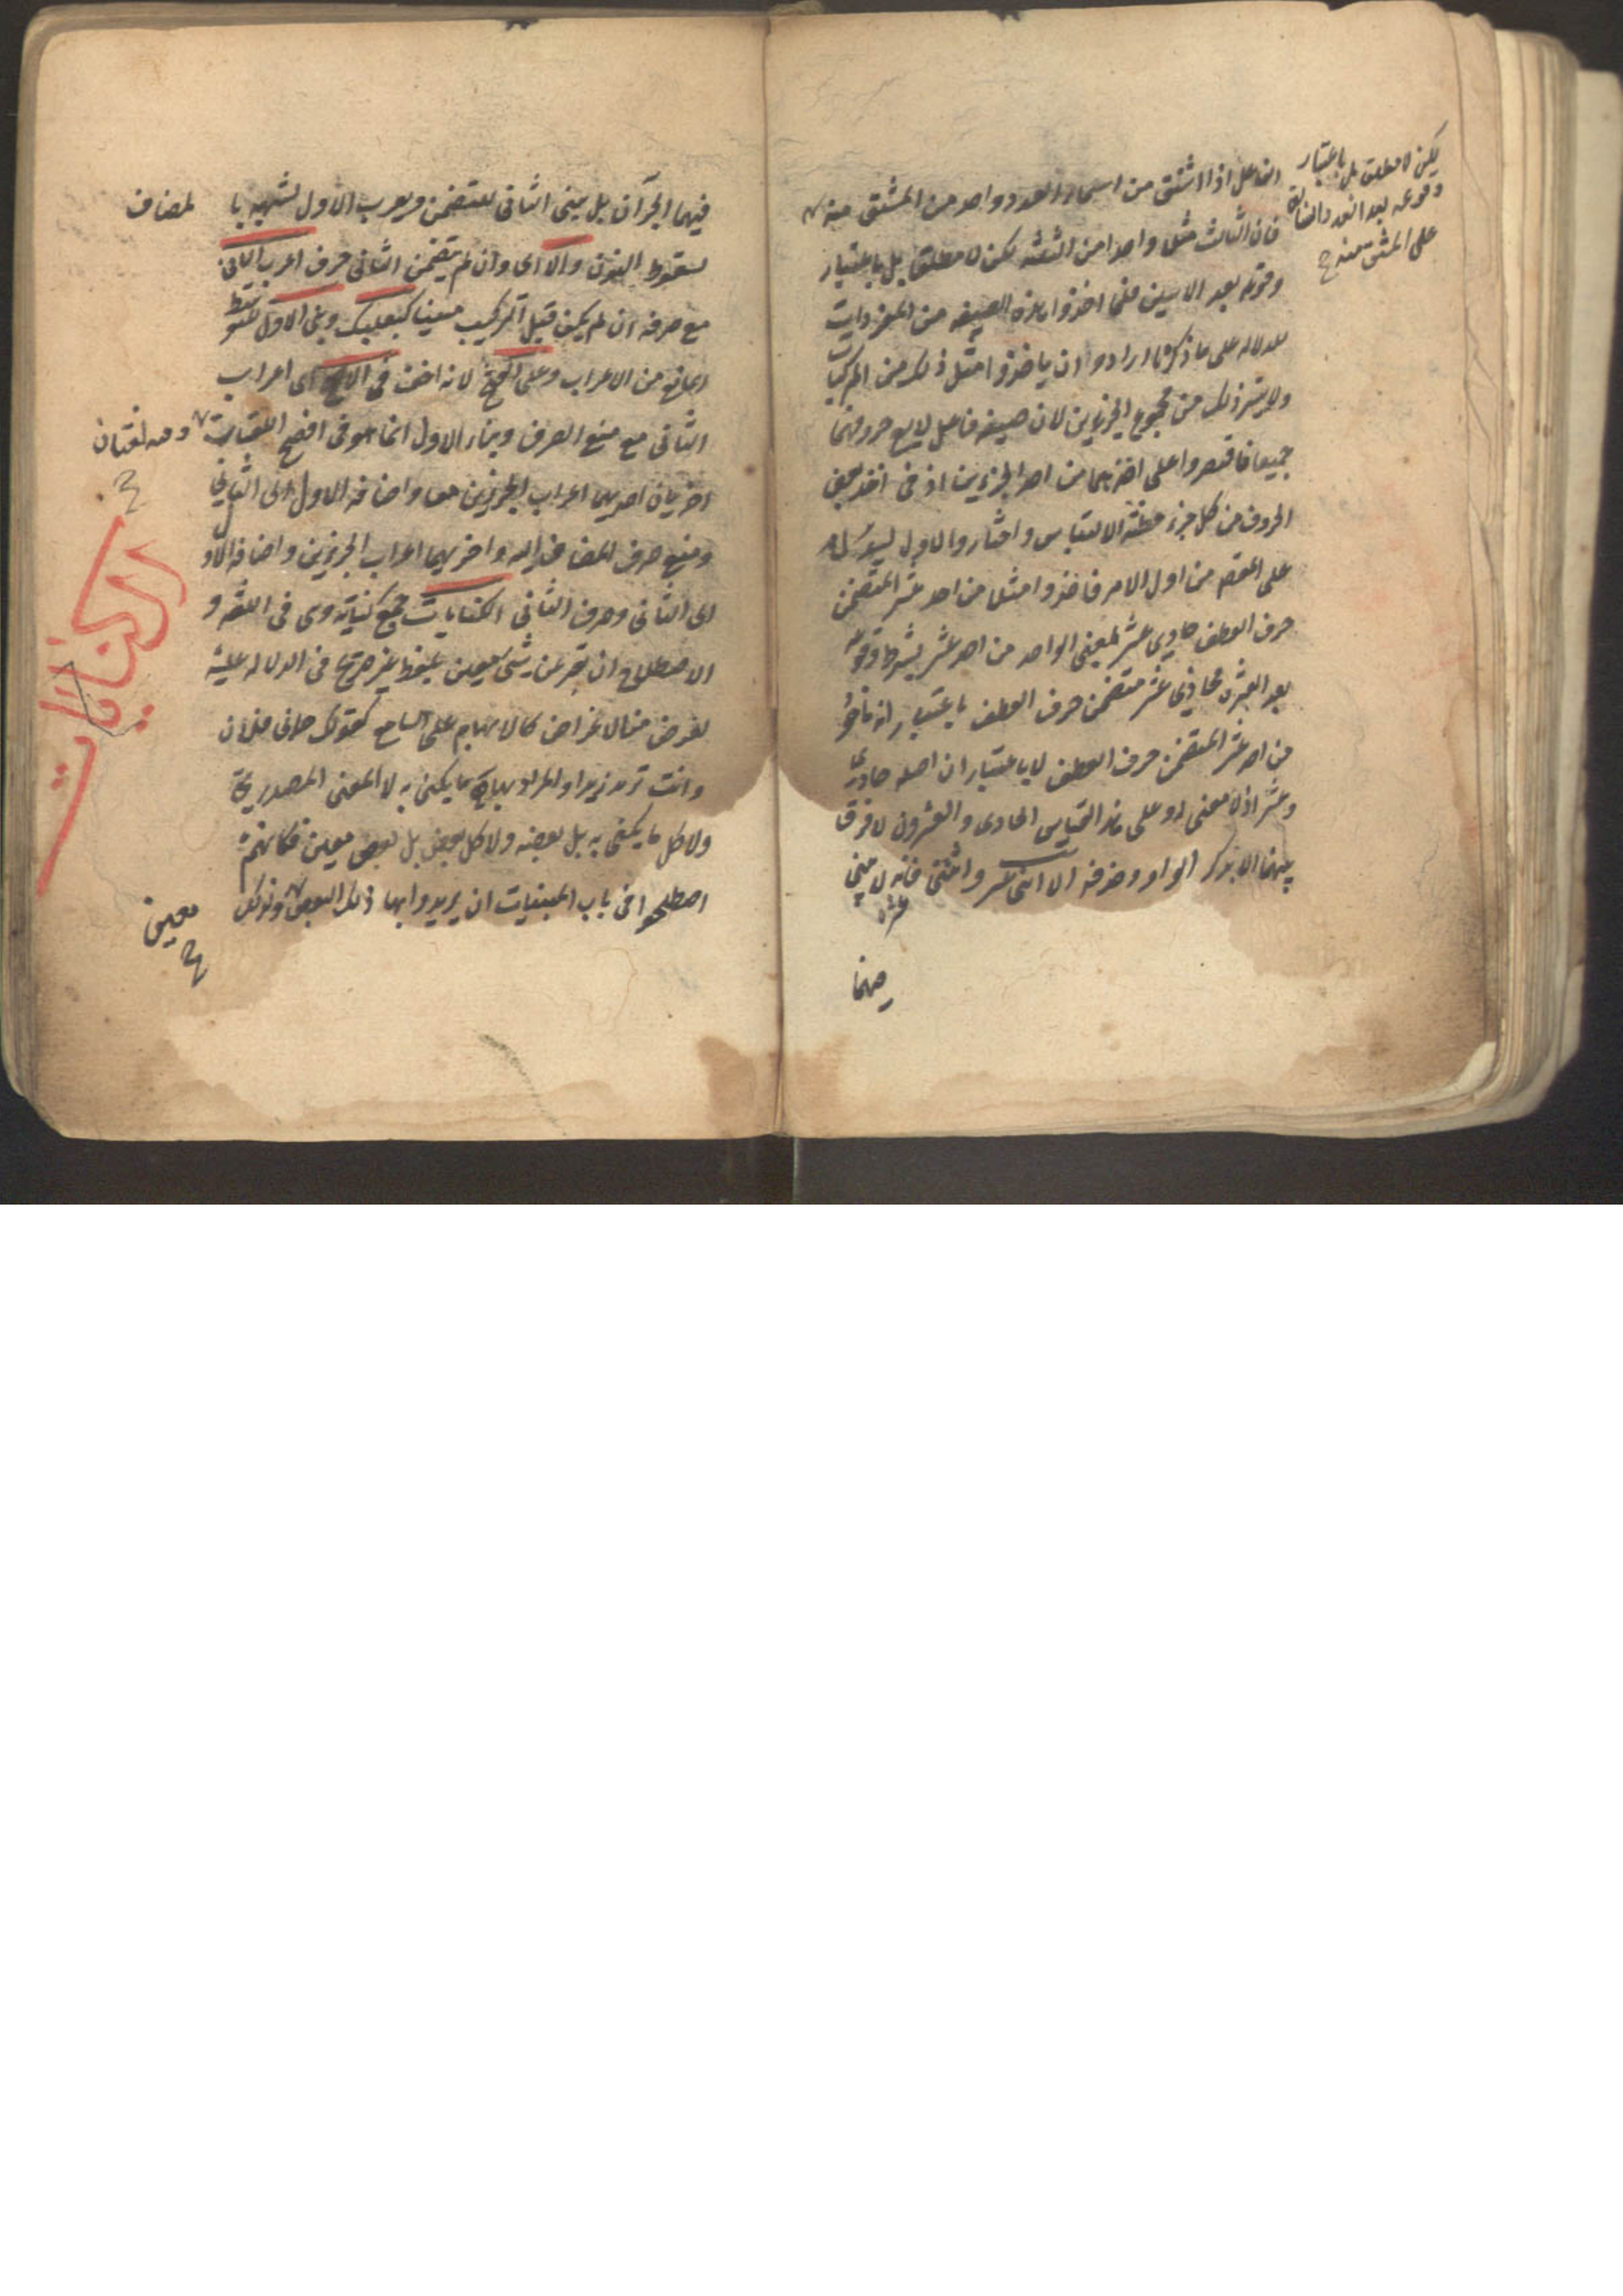 الفاعل اذا اشتق من اسماء العدد واحد من المشتق منه
فان الثالث مثلا واحدا من الثلثة لكن لا مطلقا بل باعتبار
وقوعه بعد الاثنين فلما اخذوا هذه الصيغة من المفردات
للدلالة على ما ذكرنا ارادوا ان ياخذوا مثل ذلك من المركبات
ولا يتيسر ذلك من مجموع الجزئين لان صيغة فاعل لا يسع حروفهما
جميعا فاقتصروا على اخذها من احد الجزئين اذ فى اخذ بعض
الحروف من كل جزء مظنة الالتباس واختاروا الاول ليدل
على المقصود من اول الامر فاخذوا مثلا من احد عشر المتضمن
حرف العطف حادى عشر بمعنى الواحد من احد عشر بشرط وقوعه
بعد العشرة فحادى عشر متضمن حرف العطف باعتبار انه ماخوذ
من احد عشر المتضمن حرف العطف لا باعتبار ان اصله حادى
وعشر اذ لا معنى له وعلى هذا القياس الحادى والعشرون لا فرق
بينهما الا بذكر الواو وحذفه الا اثنى عشر واثنتى عشرة فانه لا يبنى
يكن لا مطلقا بل باعتبار
وقوعه بعد العدد
على المثنى منه
فيهما
فيهما الجزآن بل يبنى الثانى للتضمن ويعرب الاول لشبهه با لمضاف
لسقوط النون والا اى وان لم يتضمن الثانى حرف اعرب الثانى
مع صرفه ان لم يكن قبل التركيب مبنيا كبعلبك وبنى الاول لتوسط
المانع من الاعراب وعلى الفتح لانه اخف فى الافصح اى اعراب
الثانى مع منع الصرف وبناء الاول انما هو فى افصح اللغات
وفيه لغتان
اخريان احديهما اعراب الجزئين معا واضافة الاول الى الثانى
ومنع صرف المضاف اليه واخريهما اعراب الجزئين واضافة الاول
الى الثانى وصرف الثانى الكنايات جمع كناية وهى فى اللغة و
الاصطلاح ان يعبر عن شئ معين بلفظ غير صريح فى الدلالة عليه
لغرض من الاغراض كالابهام على السامع كقولك جاءنى فلان
وانت تريد زيدا والمراد بها هنا ما يكنى به لا المعنى المصدرى
ولا كل ما يكنى به بل بعضه ولا كل بعض بل بعض معين فكانهم
اصطلحوا فى باب المبنيات ان يريدوا بها ذلك البعض
معين
الكنايات